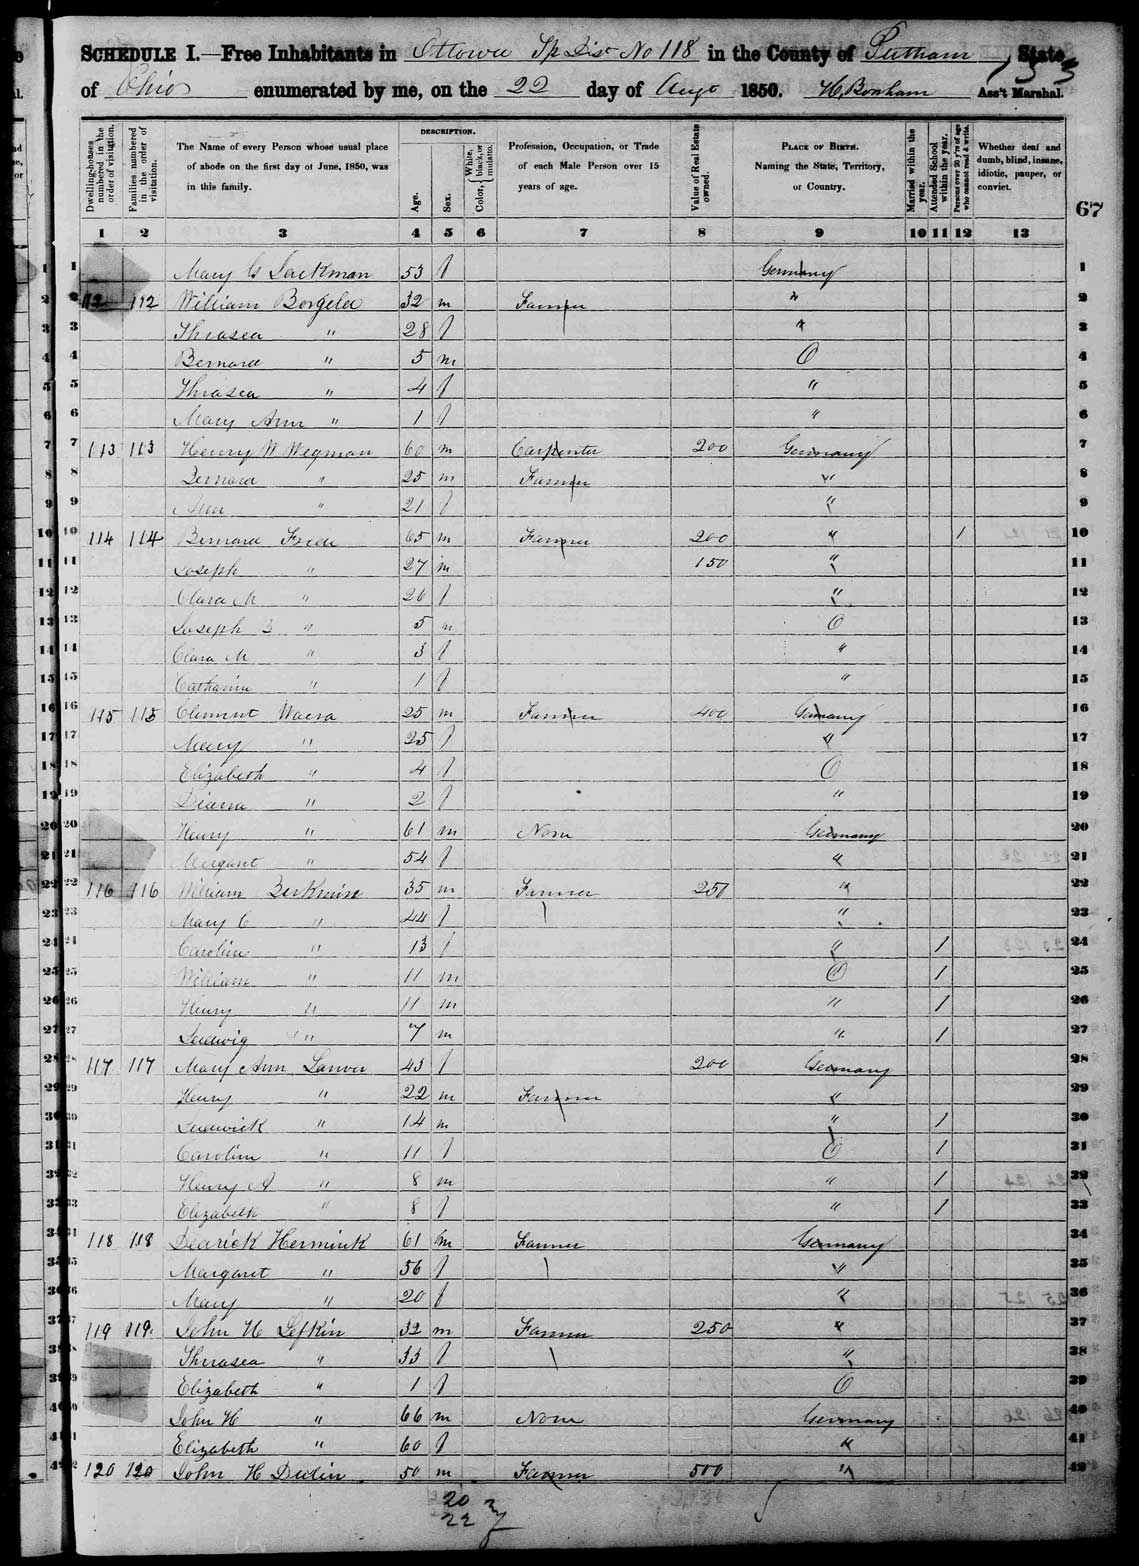 SCHEDULE I.—Free Inhabitants in Ottowa Sp Dist No 118 in the County of Putnam State
of Ohio enumerated by me, on the 22 day of Augt 1850. H, Bonham Ass't Marshal.
133
67
Dwelling-houses numbered in the order of visitation.
Families numbered in the order of visitation.
The Name of every Person whose usual place of abode on the first day of June, 1850, was in this family.
DESCRIPTION.
Age.
Sex.
Color, White, black, or mulatto.
Profession, Occupation, or Trade of each Male Person over 15 years of age.
Value of Real Estate owned.
PLACE OF BIRTH. Naming the State, Territory, or Country.
Married within the year.
Attended School within the year.
Persons over 20 y'rs of age who cannot read & write.
Whether deaf and dumb, blind, insane, idiotic, pauper, or convict.
1 2 3 4 5 6 7 8 9 10 11 12 13
1 Mary G Sackman 53 f Germany 1
2 112 112 William Borgela 32 m Farmer " 2
3 Thrasea " 28 f " 3
4 Bernard " 5 m O 4
5 Thrasea " 4 f " 5
6 Mary Ann " 1 f " 6
7 113 113 Henry W Wegman 60 m Carpenter 200 Germany 7
8 Bernard " 25 m Farmer " 8
9 Ann " 21 f " 9
10 114 114 Bernard Frede 65 m Farmer 200 " 1 10
11 Joseph " 27 m 150 " 11
12 Clara M " 26 f " 12
13 Joseph B " 5 m O 13
14 Clara M " 3 f " 14
15 Catharine " 1 f " 15
16 115 115 Clement 25 m Farmer 400 Germany 16
17 Mary " 25 f " 17
18 Elizabeth " 4 f O 18
19 Diana " 2 f " 19
20 Henry " 61 m None Germany 20
21 Margaret " 54 f " 21
22 116 116 William 35 m Farmer 250 " 22
23 Mary C " 44 f " 23
24 Caroline " 13 f " 1 24
25 William " 11 m O 1 25
26 Henry " 11 m " 1 26
27 Ludwig " 7 m " 1 27
28 117 117 Mary Ann 43 f 200 Germany 28
29 Henry " 22 m Farmer " 29
30 Ludwick " 14 m " 1 30
31 Caroline " 11 f O 1 31
32 Henry A " 8 m " 1 32
33 Elizabeth " 8 f " 1 33
34 118 118 Dearick Hermink 61 m Farmer Germany 34
35 Margaret " 56 f " 35
36 Mary " 20 f " 36
37 119 119 John H Lefkin 32 m Farmer 250 " 37
38 Thrasea " 33 f " 38
39 Elizabeth " 1 f O 39
40 John H " 66 m None Germany 40
41 Elizabeth " 60 f " 41
42 120 120 John H 50 m Farmer 500 " 42
20
22